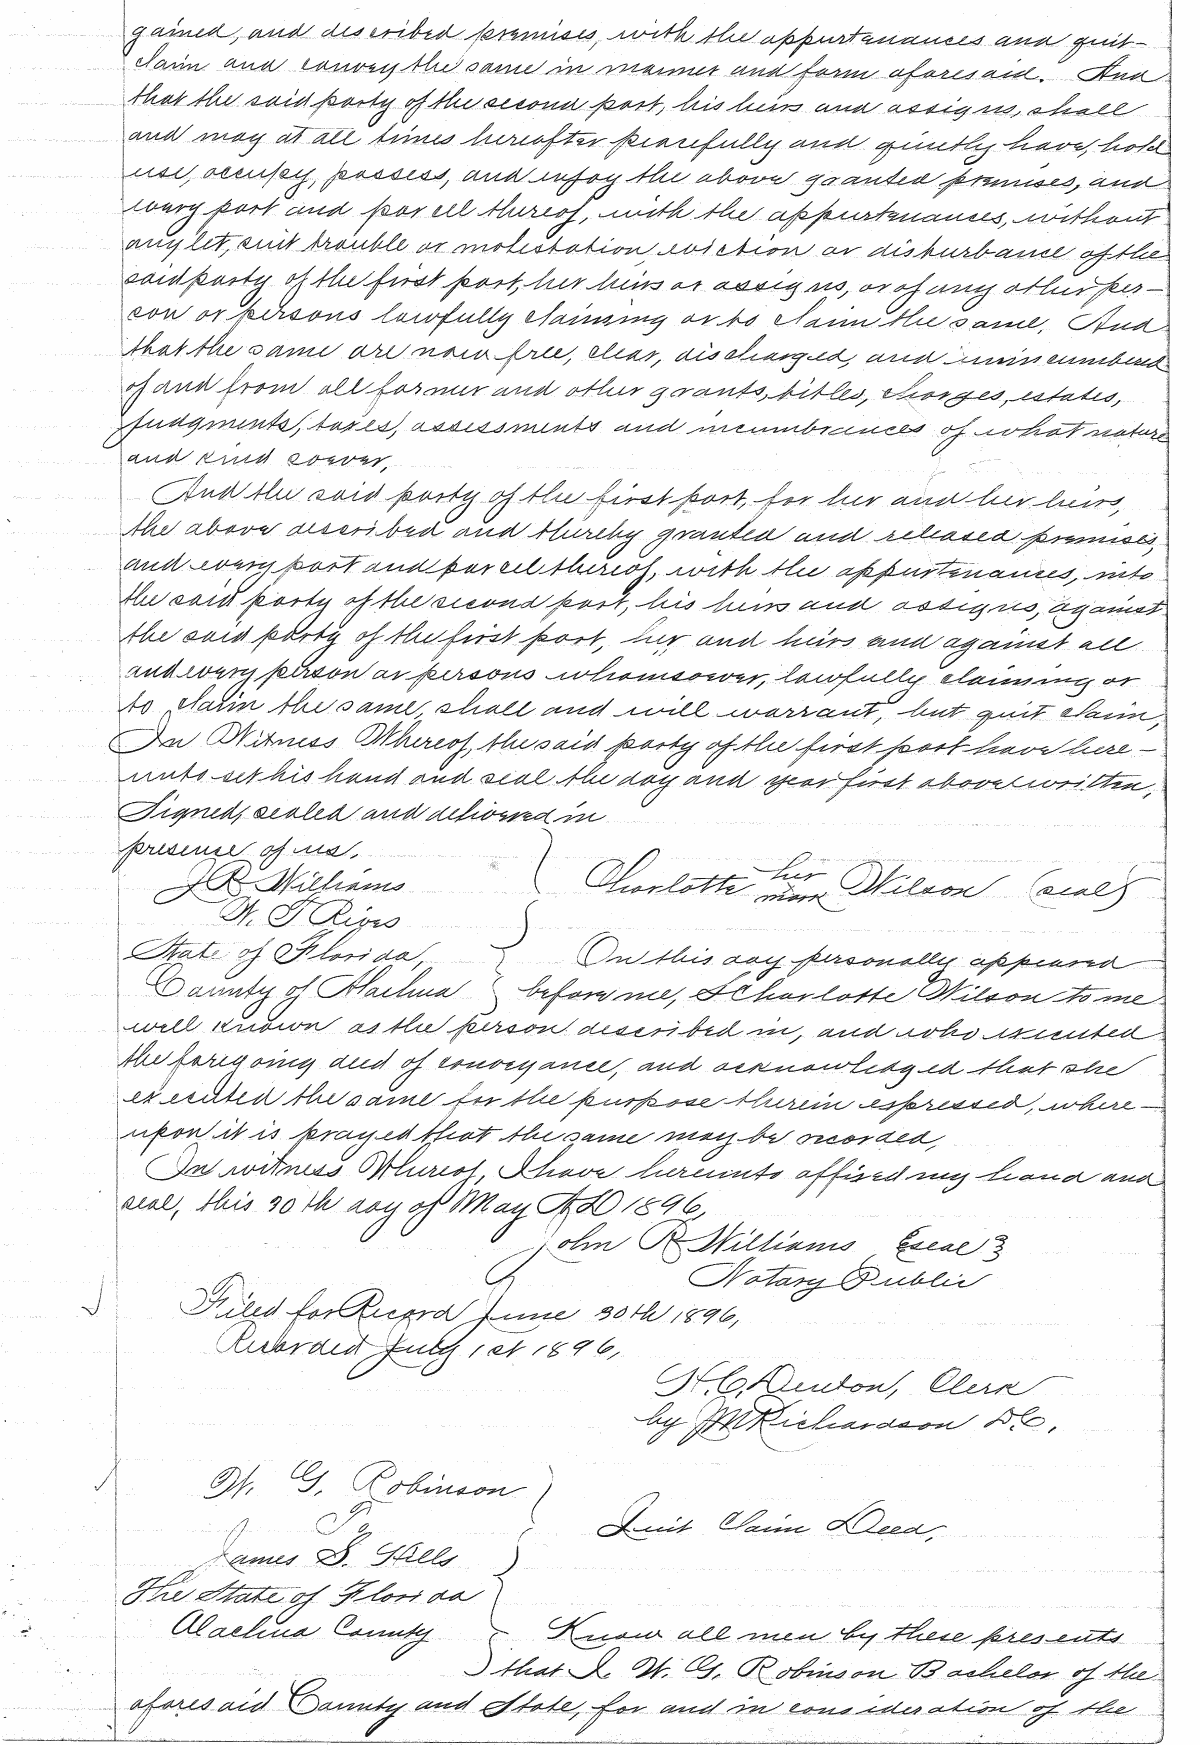 gained, and described premises, with the appurtenances and quit-
claim and convey the same in manner and form aforesaid. And
that the said party of the second part, his heirs and assigns, shall
and may at all times hereafter peacefully and quietly have, hold
use, occupy, possess, and enjoy the above granted premises, and
every part and parcell thereof, with the appurtenances, without
any let, suit trouble or molestation, eviction or disturbance of the
said party of the first part, her heirs or assigns, or of any other per-
son or persons lawfully claiming or to claim the same, And
that the same are now free, clear, discharged, and unincumbered
of and from all former and other grants, titles, charges, estates,
judgments, taxes, assessments and incumbrances of what nature
and kind soever,
And the said party of the first part, for her and her heirs,
the above described and thereby granted and released premises,
and every part and parcel thereof, with the appurtenances, into
the said party of the second part, his heirs and assigns, against
the said party of the first part, her and heirs and against all
and every person or persons whomsoever, lawfully claiming or
to claim the same, shall and will warrant, but quit claim,
In Witness Whereof, the said party of the first part have here-
unto set his hand and seal the day and year first above written,
Signed, sealed and delivered in
presence of us.
J R Williams
Charlotte her mark Wilson (seal)
W. T Rives
State of Florida,
On this day personally appeared
County of Alachua before me, Charlotte Wilson to me
well known as the person described in, and who executed
the foregoing deed of conveyance, and acknowledged that she
executed the same for the purpose therein expressed, where-
upon it is prayed that the same may be recorded,
In witness Whereof, I have hereunto affixed my hand and
seal, this 30th day of May AD 1896,
John R Williams {seal}
Notary Public
Filed for Record June 30th 1896,
Recorded July 1st 1896,
H. C. Denton, Clerk
by JM Richardson D.C.
W. G. Robinson
To
Quit Claim Deed,
James D. Hills
The State of Florida
Alachua County
Know all men by these presents
that I. W. G. Robinson Bachelor of the
aforesaid County and State, for and in consideration of the